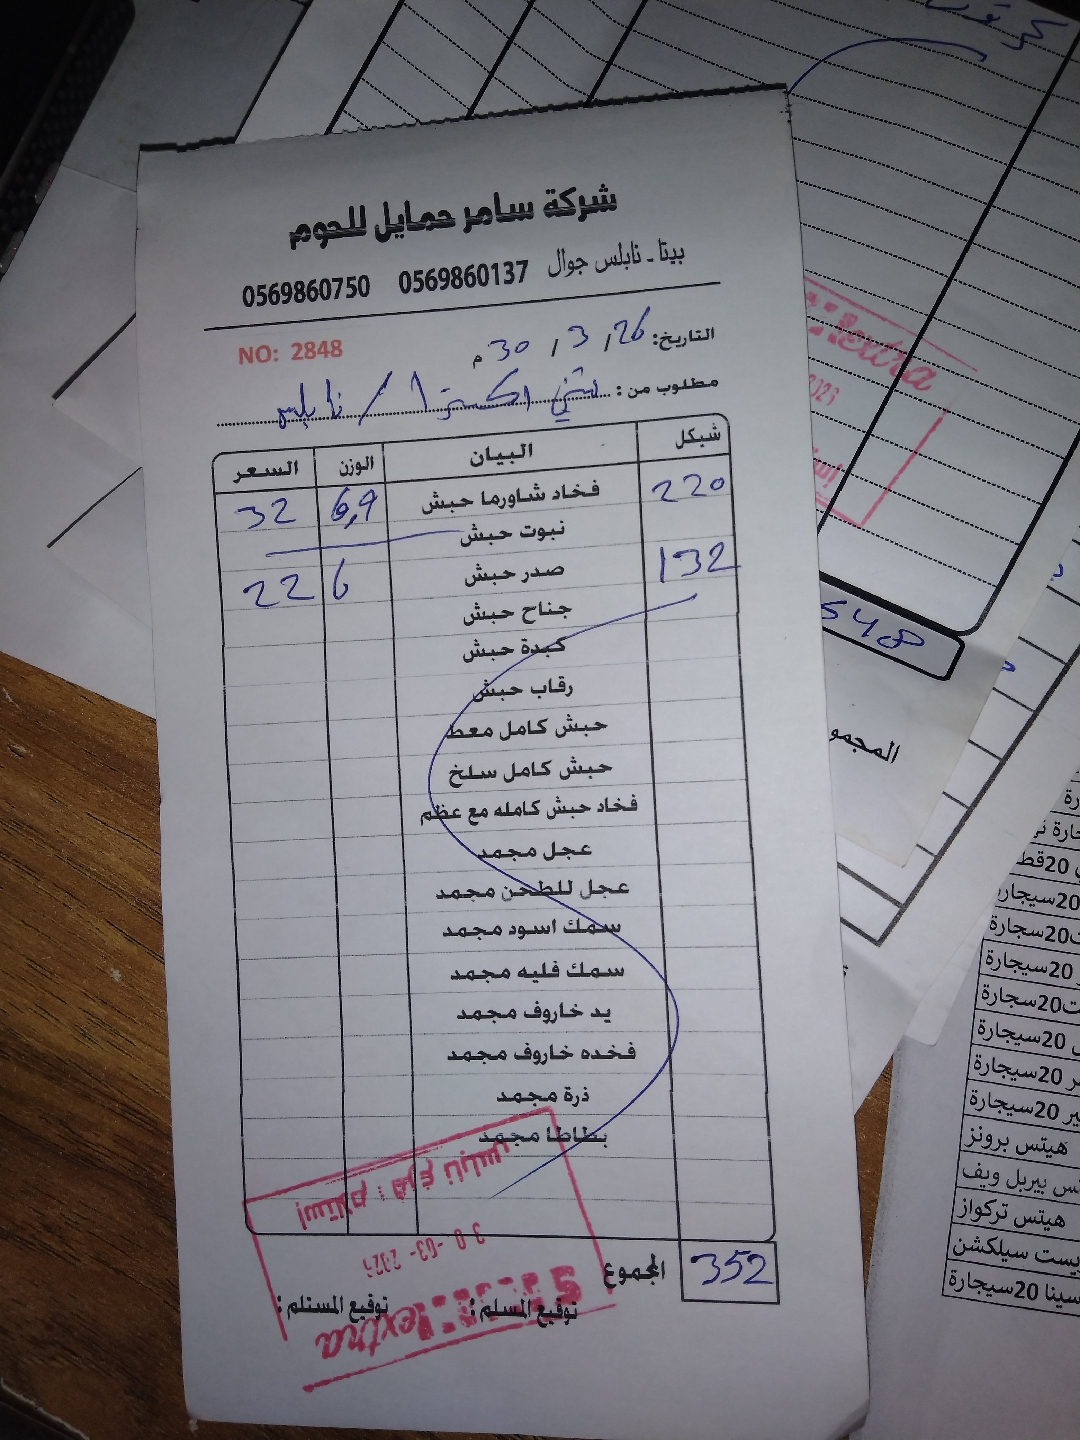 شركة سامر حمايل للحوم
بيتا - نابلس جوال 0569860137 0569860750
NO: 2848
التاريخ: 26 / 3 / 30 م
مطلوب من : / نابلس
شيكل البيان الوزن السعر
220 فخاد شاورما حبش 6,9 32
نبوت حبش
132 صدر حبش 6 22
جناح حبش
كبدة حبش
رقاب حبش
حبش كامل معط
حبش كامل سلخ
فخاد حبش كامله مع عظم
عجل مجمد
عجل للطحن مجمد
سمك اسود مجمد
سمك فليه مجمد
يد خاروف مجمد
فخده خاروف مجمد
ذرة مجمد
بطاطا مجمد
المجموع 352
توقيع المسلم : توقيع المستلم :
إستلام : فرع نابلس
30 -03- 202
extra
extra
548
المجمو
20سيجارة
20سجارة
20سيجارة
20سجارة
20سيجارة
20سيجارة
20سيجارة
هيتس برونز
بيربل ويف
هيتس تركواز
سيلكشن
20سيجارة